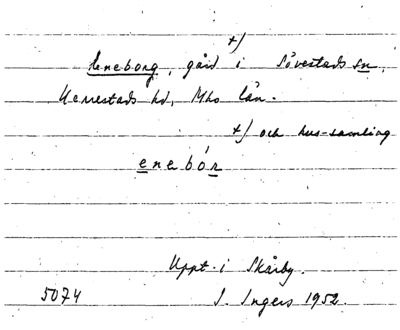 +)
Leneborg, gård i Sövestads sn,
Herrestads hd, Mho län.
+) och hus-samling
enebór
Uppt. i Skårby.
5074 I. Ingers 1952.